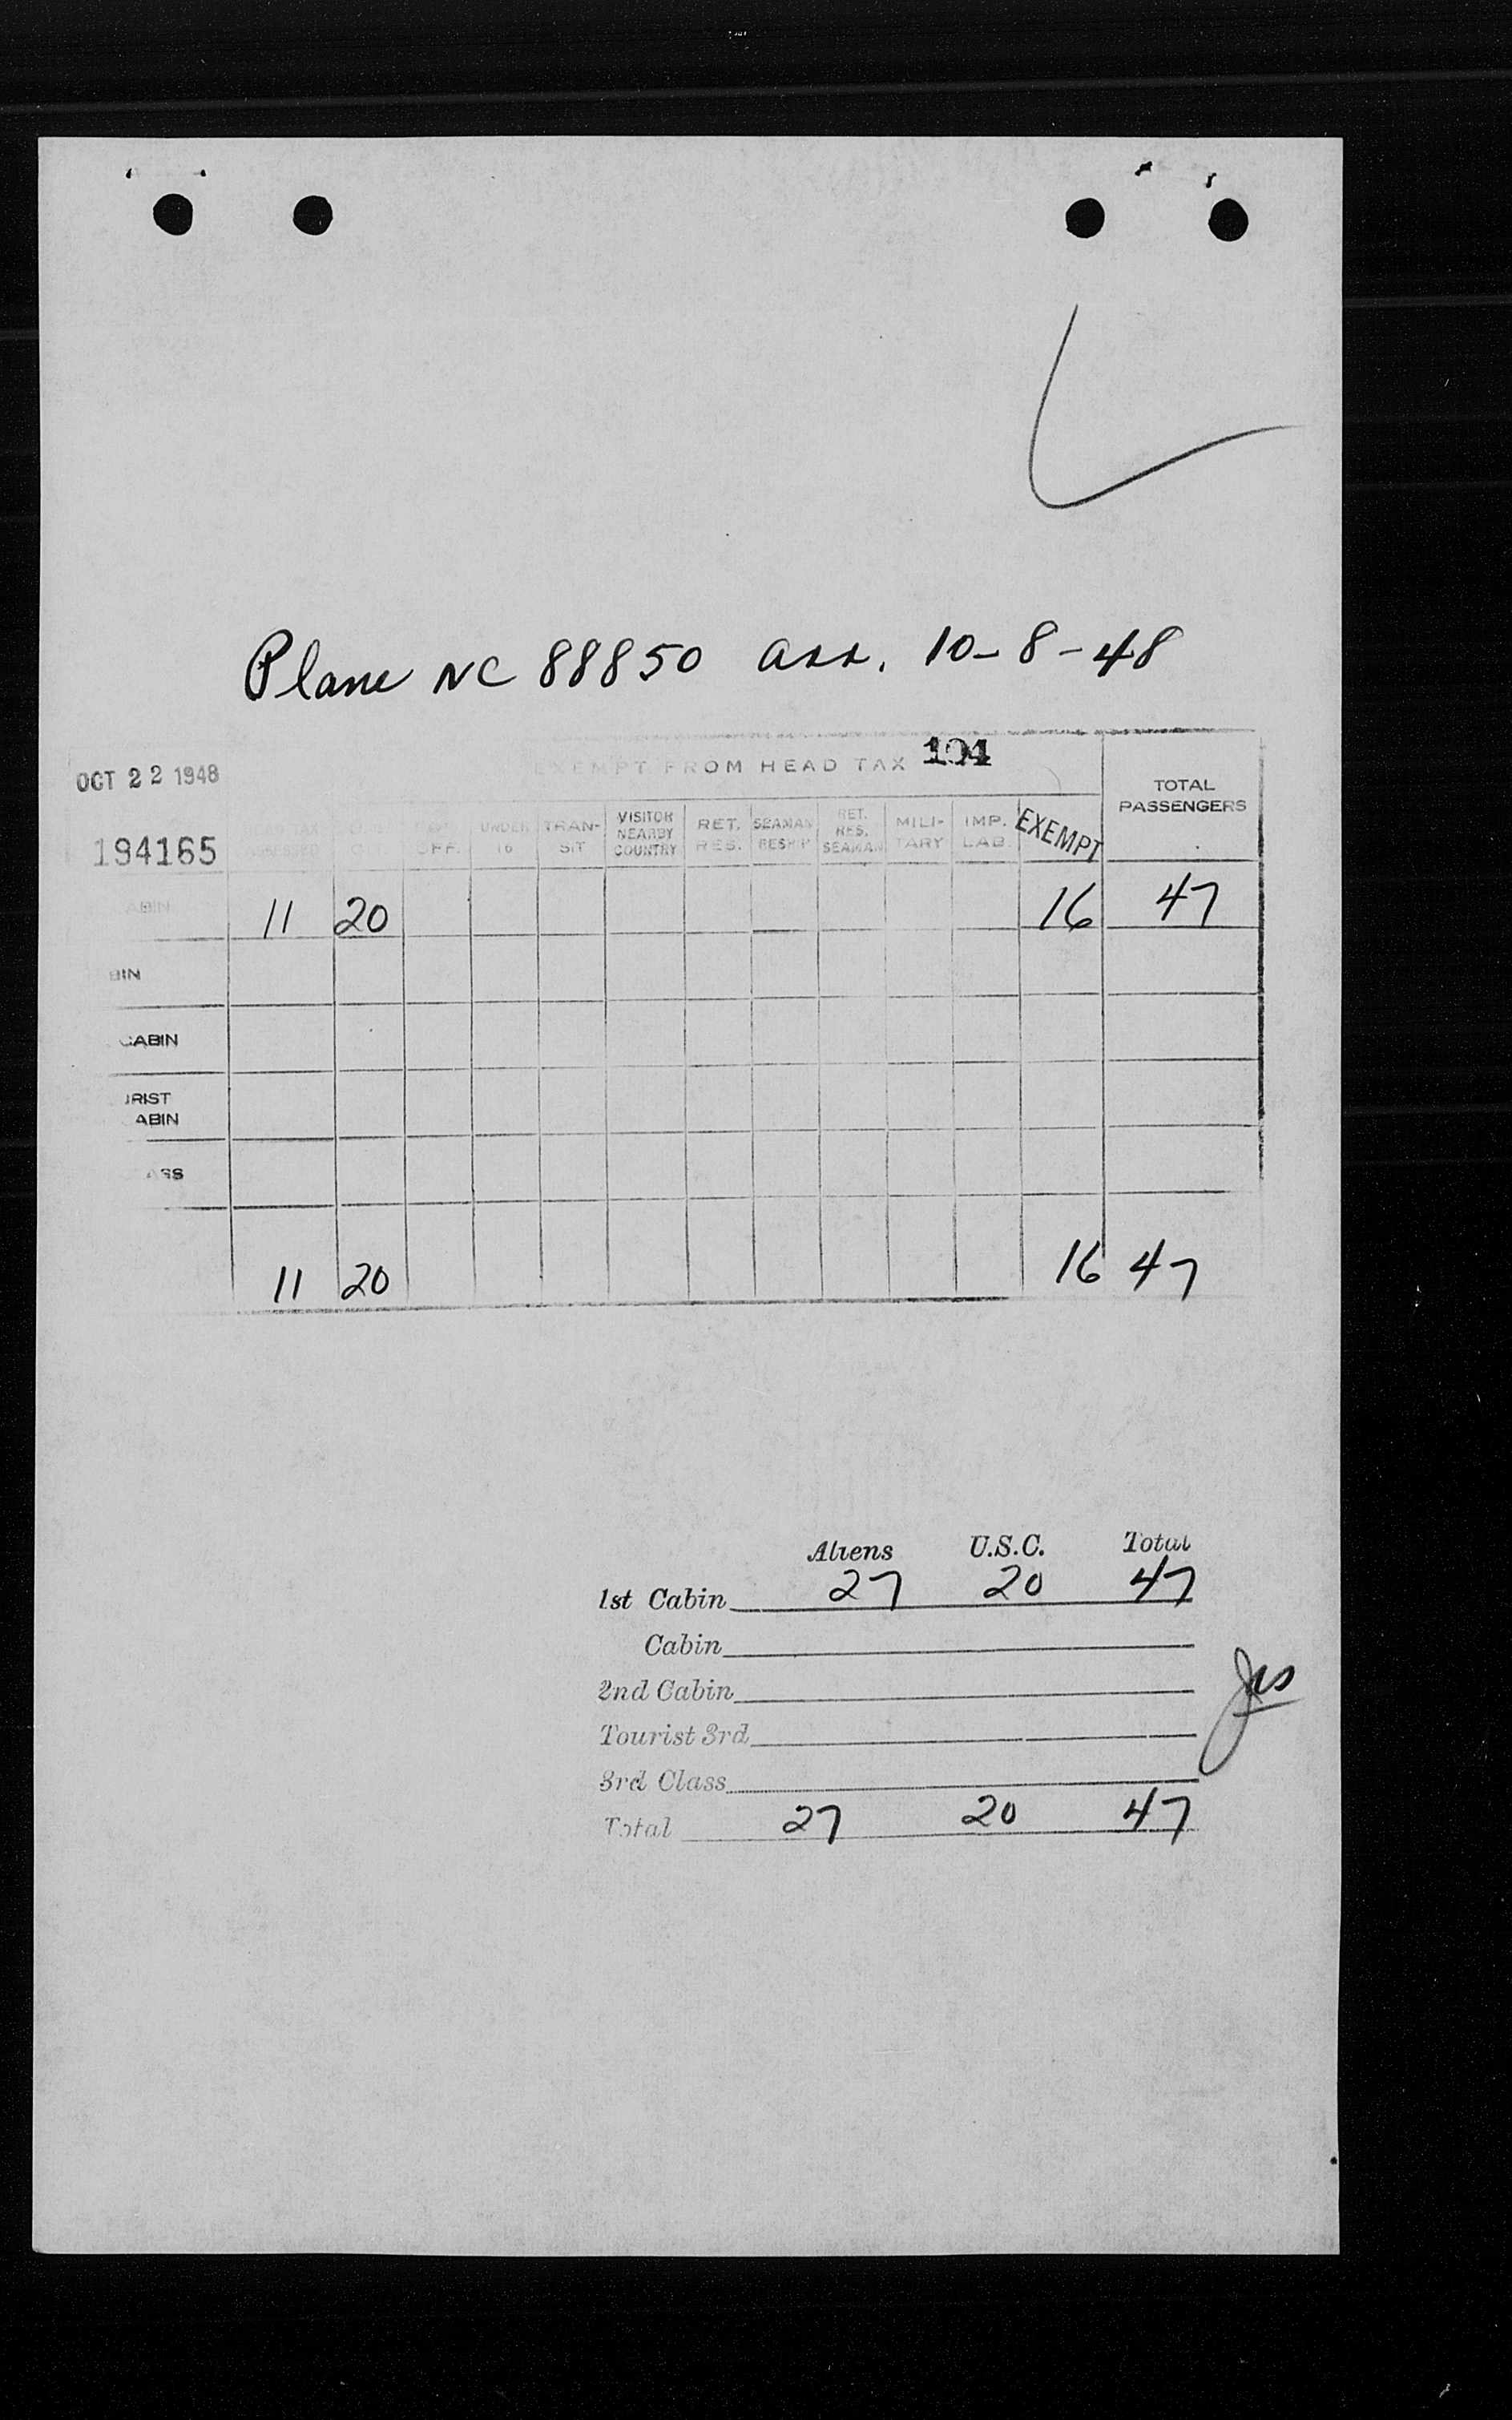 Plane NC 88850 arr. 10-8-48
OCT 22 1948
EXEMPT FROM HEAD TAX 104
TOTAL PASSENGERS
194165
OFF.
UNDER 16
TRAN-SIT
VISITOR NEARBY COUNTRY
RET. RES.
SEAMAN RESHIP
RET. RES. SEAMAN
MILI-TARY
IMP. LAB.
EXEMPT
ABIN 11 20 16 47
BIN
CABIN
RIST
ABIN
ASS
11 20 16 47
Aliens U.S.C. Total
1st Cabin 27 20 47
Cabin
2nd Cabin
Tourist 3rd
3rd Class
Total 27 20 47